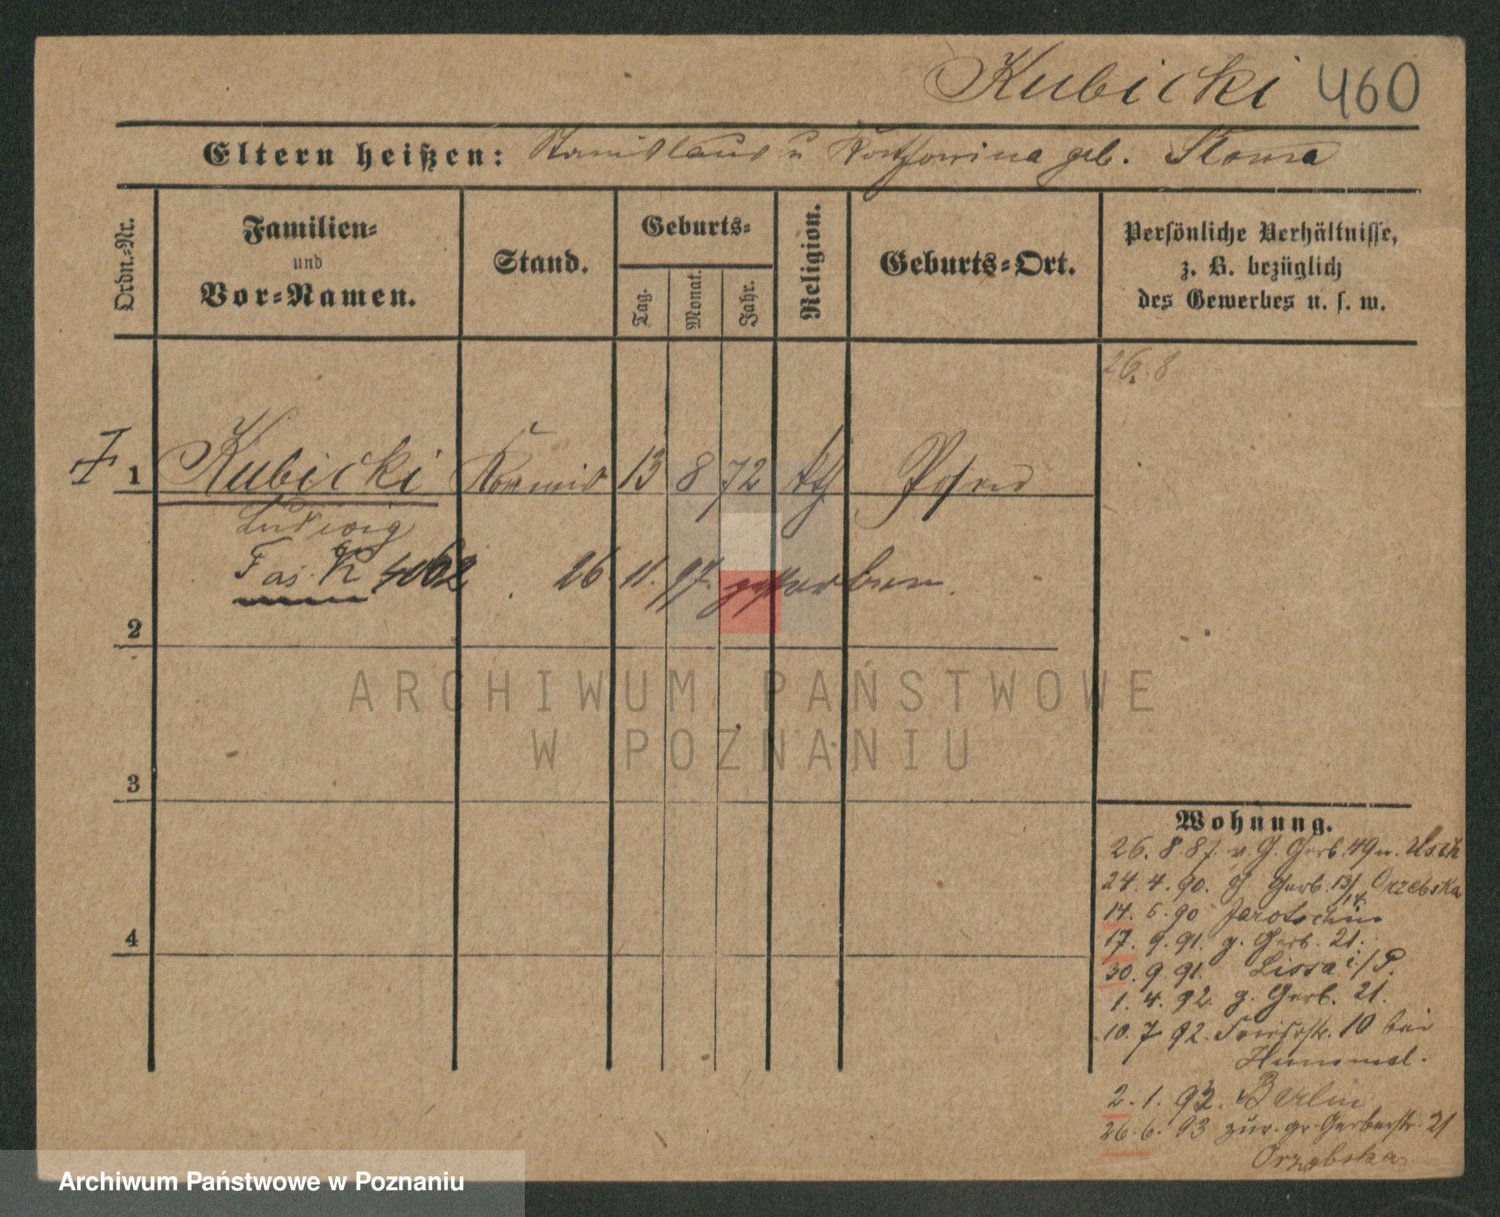 Kubicki 460
Eltern heißen: Stanislaus u geb. Sloma
Ordn.-Nr.
Familien-
und
Vor-Namen.
Stand.
Geburts-
Tag.
Monat.
Jahr.
Religion.
Geburts-Ort.
Persönliche Verhältnisse,
z. B. bezüglich
des Gewerbes u. s. w.
26. 8
1 Kubicki Kommis 13 8 72 kth Posen
Ludwig
Fas. K 4062 26 11. 97. gestorben.
2
3
4
ARCHIWUM PAŃSTWOWE
W POZNANIU
Wohnung.
26. 8. 87. v. G. Gerb. 49 n.
24. 4. 90. G. Gerb. 13/14. Orzebska
14. 5. 90 Jarotschin
17. 9. 91. g. Gerb. 21.
30. 9. 91. Lissa i./P.
1. 4. 92. g. Gerb. 21.
10. 7. 92. 10 bei
Hummel.
2. 1. 93. Berlin
26. 6. 93 zur. gr. Gerberstr. 21
Orzebska
Archiwum Państwowe w Poznaniu